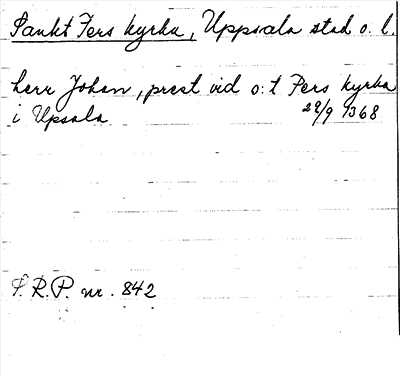 Sankt Pers kyrka, Uppsala stad o. l.
herr Johan, prest vid s:t Pers kyrka
i Upsala 29/9 1368
S.R.P. nr. 842